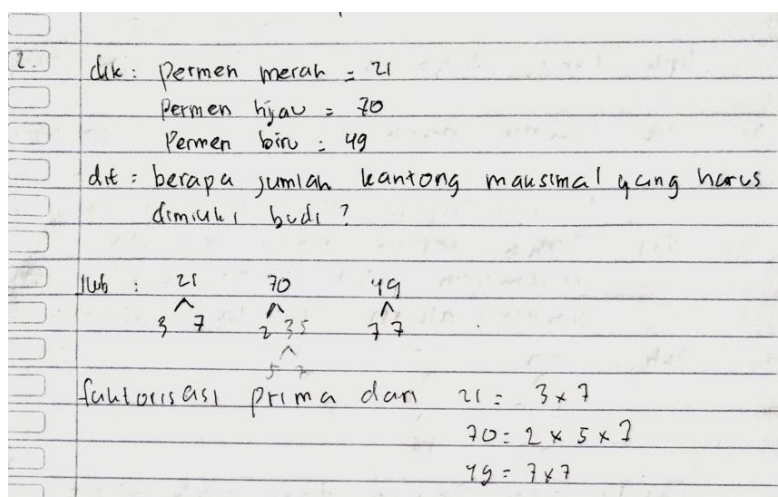 2. dik : Permen merah = 21
Permen hijau = 70
Permen biru = 49
dit : berapa jumlah kantong maksimal yang harus
dimiliki budi ?
Jwb : 21 70 49
3 7 2 35 7 7
5 7
faktorisasi prima dari 21 = 3 x 7
70 = 2 x 5 x 7
49 = 7 x 7